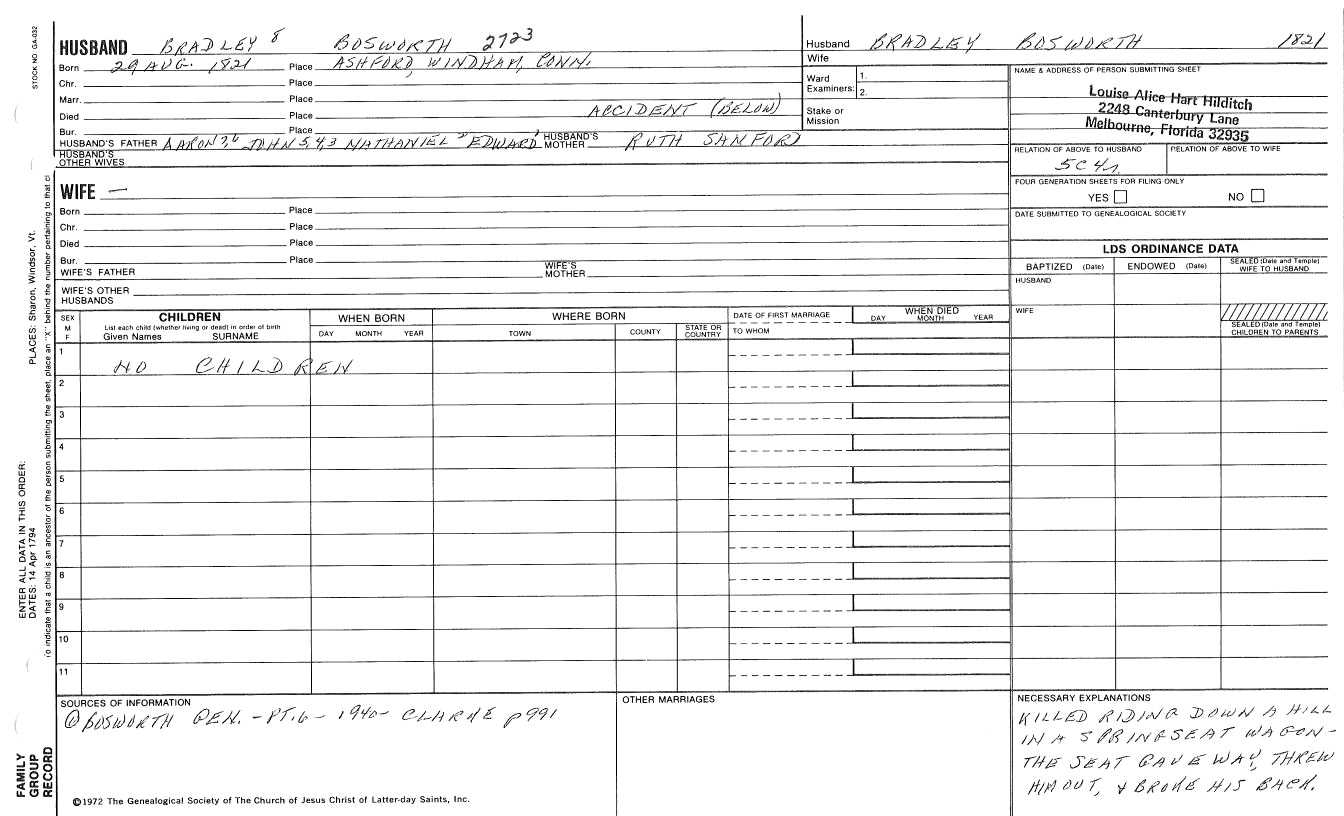 STOCK NO. GA-032
HUSBAND BRADLEY 8 BOSWORTH 2723
Born 29 AUG. 1821 Place ASHFORD, WINDHAM, CONN.
Chr. Place
Marr. Place
Died Place ACCIDENT (BELOW)
Bur. Place
HUSBAND'S FATHER AARON 7,6 JOHN 5,4,3 NATHANIEL 2 EDWARD 1 HUSBAND'S MOTHER RUTH SANFORD
HUSBAND'S OTHER WIVES
Husband BRADLEY BOSWORTH 1821
Wife
Ward Examiners: 1. 2.
Stake or Mission
NAME & ADDRESS OF PERSON SUBMITTING SHEET
Louise Alice Hart Hilditch
2248 Canterbury Lane
Melbourne, Florida 32935
RELATION OF ABOVE TO HUSBAND RELATION OF ABOVE TO WIFE
5C4r.
FOUR GENERATION SHEETS FOR FILING ONLY
YES NO
DATE SUBMITTED TO GENEALOGICAL SOCIETY
WIFE —
Born Place
Chr. Place
Died Place
Bur. Place
WIFE'S FATHER WIFE'S MOTHER
WIFE'S OTHER HUSBANDS
LDS ORDINANCE DATA
BAPTIZED (Date) ENDOWED (Date) SEALED (Date and Temple) WIFE TO HUSBAND
HUSBAND
WIFE
SEALED (Date and Temple) CHILDREN TO PARENTS
SEX M F
CHILDREN
List each child (whether living or dead) in order of birth
Given Names SURNAME
WHEN BORN
DAY MONTH YEAR
WHERE BORN
TOWN COUNTY STATE OR COUNTRY
DATE OF FIRST MARRIAGE
TO WHOM
WHEN DIED
DAY MONTH YEAR
1 NO CHILDREN
2
3
4
5
6
7
8
9
10
11
SOURCES OF INFORMATION
@ BOSWORTH GEN. - PT. 6 - 1940 - CLARKE p 991
©1972 The Genealogical Society of The Church of Jesus Christ of Latter-day Saints, Inc.
OTHER MARRIAGES
NECESSARY EXPLANATIONS
KILLED RIDING DOWN A HILL
IN A SPRINGSEAT WAGON -
THE SEAT GAVE WAY, THREW
HIM OUT, & BROKE HIS BACK.
PLACES: Sharon, Windsor, Vt.
To indicate that a child is an ancestor of the person submitting the sheet, place an "X" behind the number pertaining to that
ENTER ALL DATA IN THIS ORDER:
DATES: 14 Apr 1794
FAMILY
GROUP
RECORD